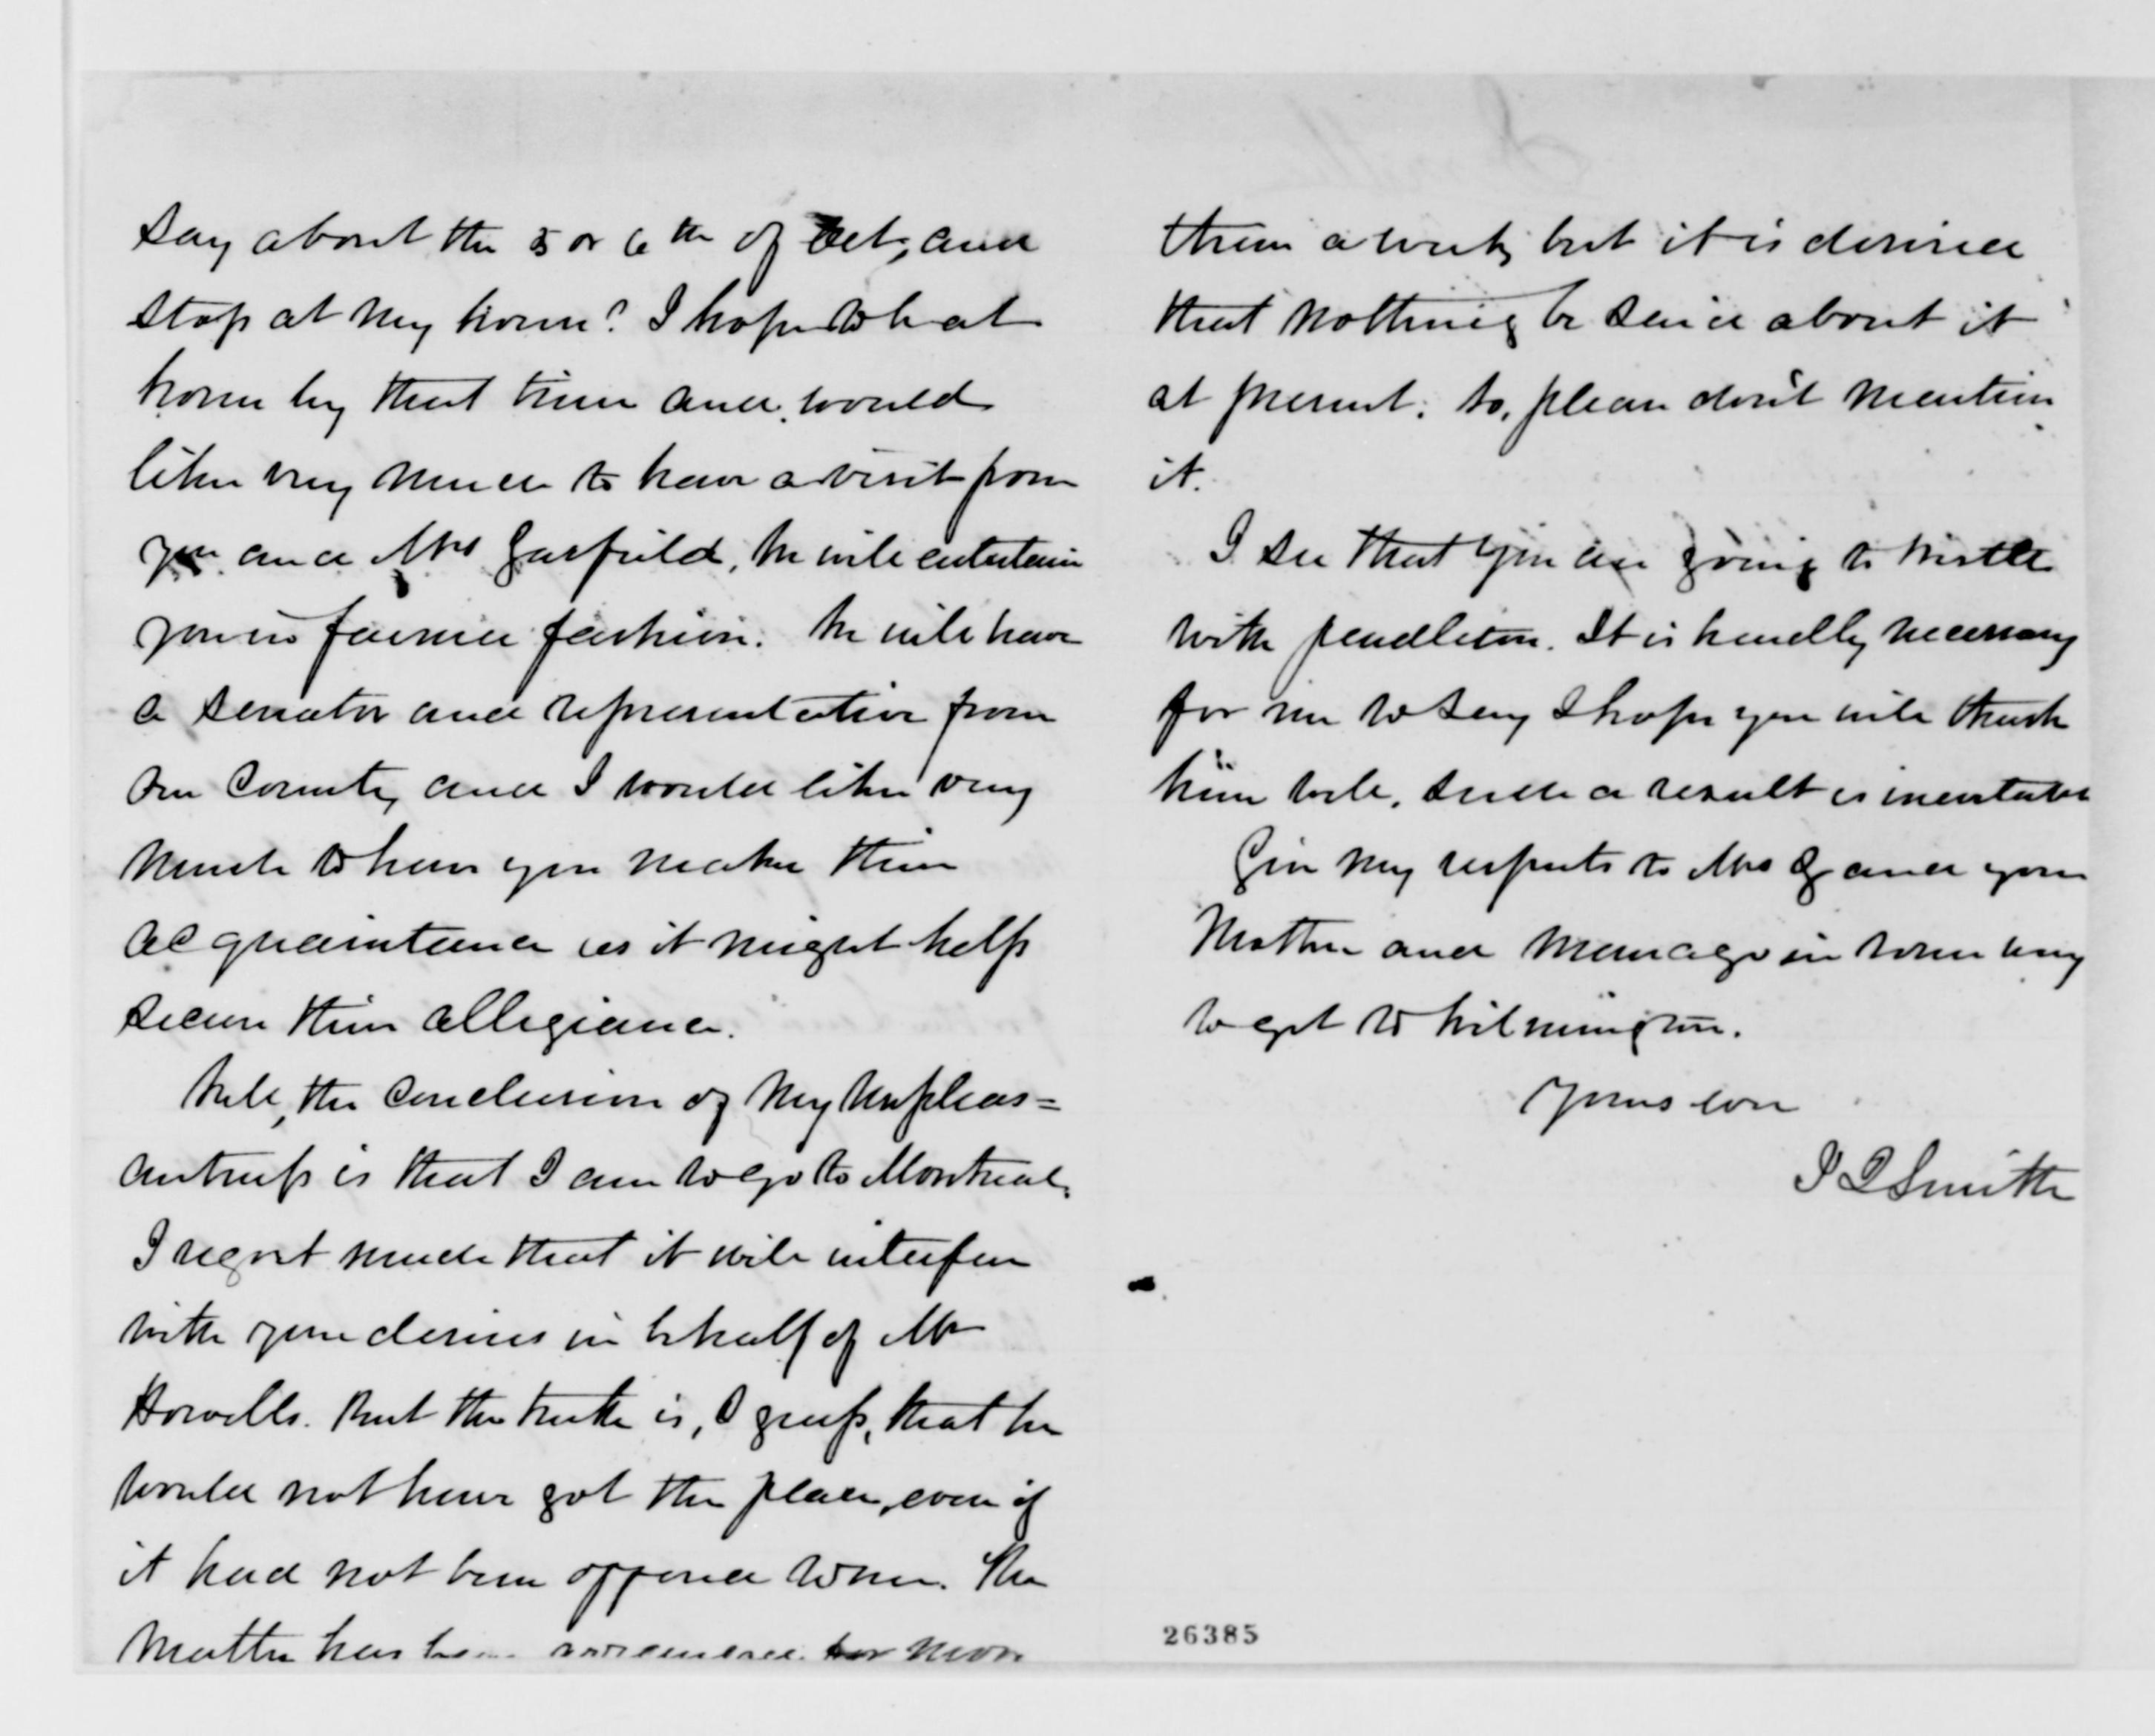 say about the 5 or 6th of Oct, and
stop at my home? I hope to be at
home by that time and would
like very much to have a visit from
you and Mrs Garfield, We will entertain
you in farmer fashion. We will have
a senator and representative from
our County and I would like very
much to have you make their
acquaintance as it might help
secure their allegiance.
Well, the conclusion of my unpleas=
antness is that I am to go to Montreal.
I regret much that it will interfere
with your desires in behalf of Mr
Howells. But the truth is, I guess, that he
would not have got the place, even if
it had not been offered to me. The
matter has been for more
than a week, but it is desired
that nothing be said about it
at present: so, please don't mention
it.
I see that you are going to wrestle
with Pendleton. It is hardly necessary
for me to say I hope you will thrash
him well. Such a result is inevitable
Give my respects to Mrs G and your
Mother and manage in some way
to get to Wilmington.
Yours ever
J Q Smith
26385